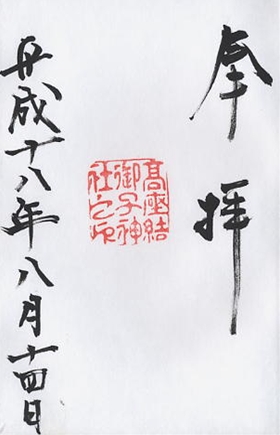 奉拝
高座結
御子神
社之印
平成十八年八月十四日